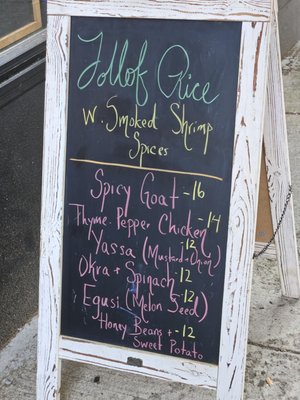 Jollof Rice
w. Smoked Shrimp
Spices
Spicy Goat -16
Thyme-Pepper Chicken -14
Yassa (Mustard + Onion) 12
Okra + Spinach -12
Egusi (Melon Seed) -12
Honey Beans + -12
Sweet Potato